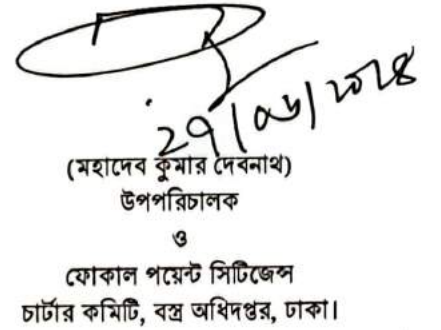 ২৭/০৬/২০২৪
(মহাদেব কুমার দেবনাথ)
উপপরিচালক
ও
ফোকাল পয়েন্ট সিটিজেন্স
চার্টার কমিটি, বস্ত্র অধিদপ্তর, ঢাকা।